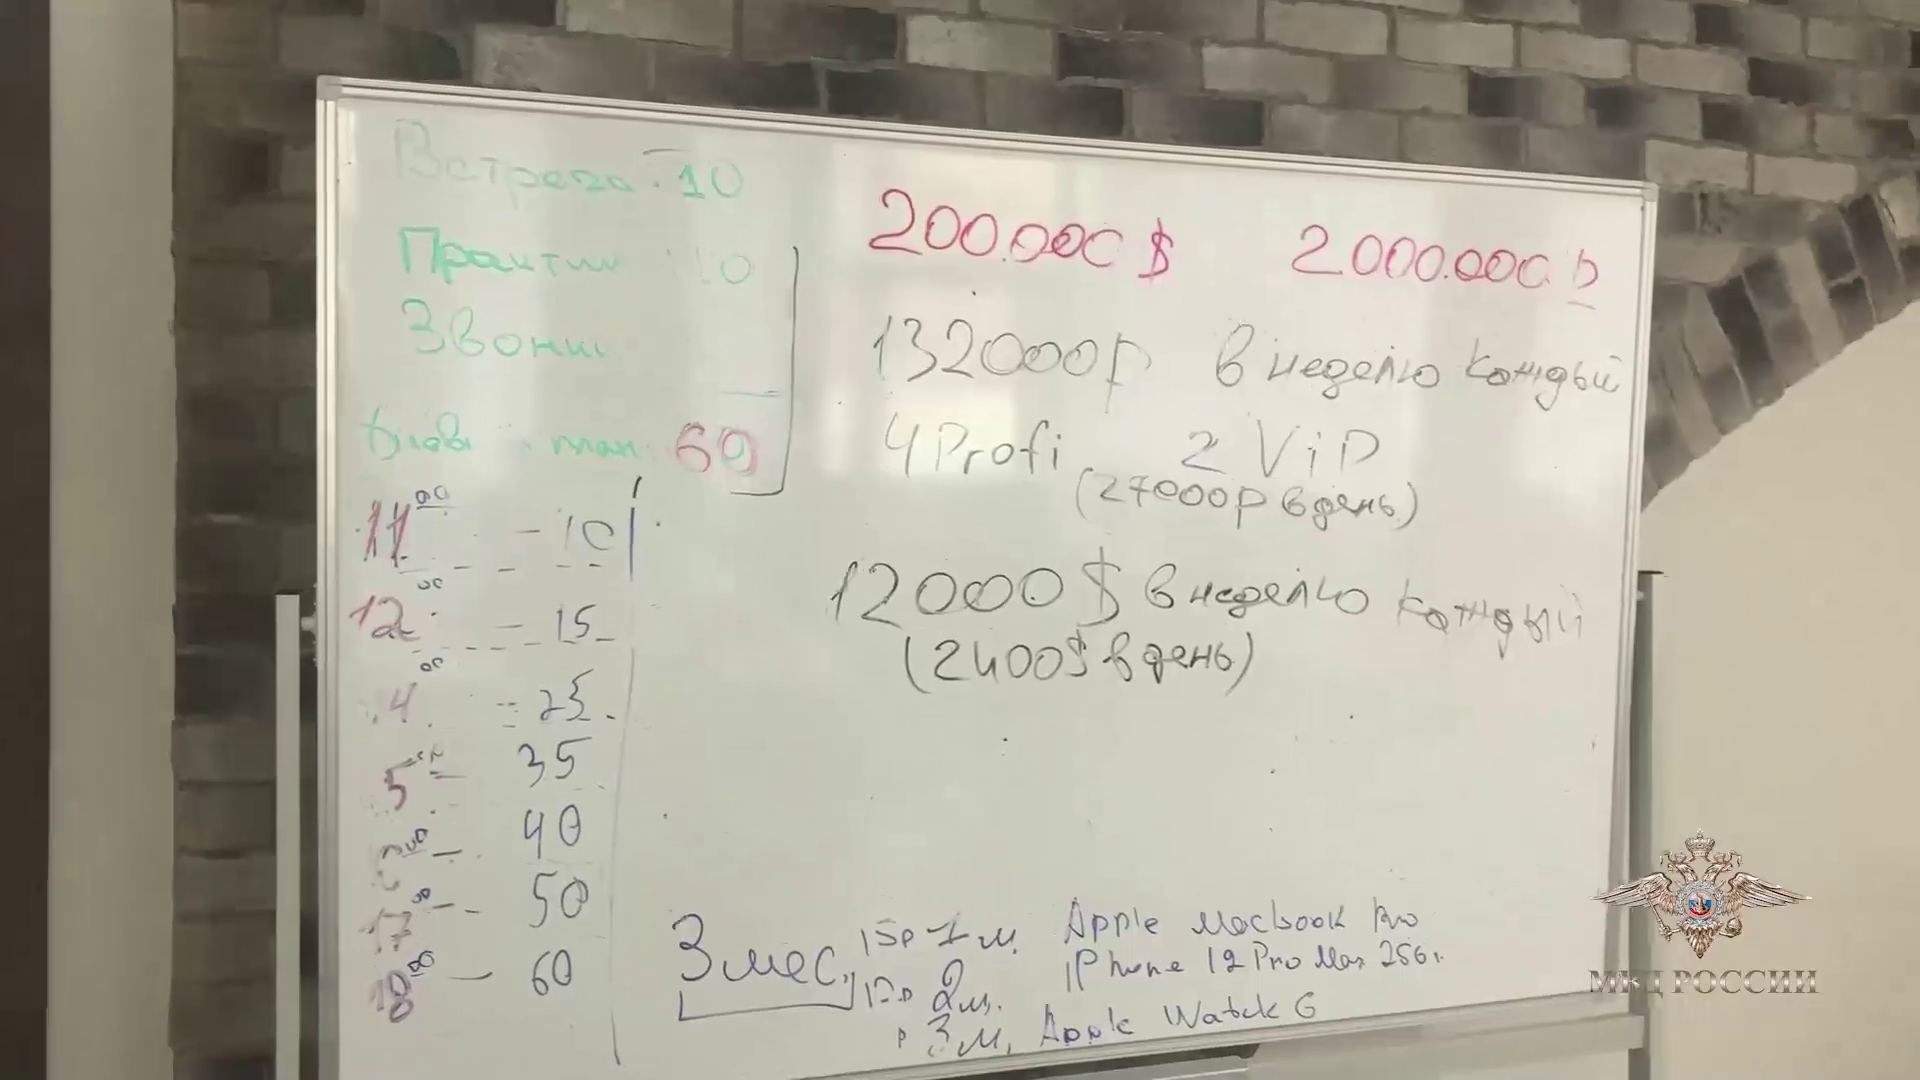 Встреча 10
Практик
Звонки
план 60
11 00 - 10
12 00 - 15
- 25
5 - 35
- 40
17 00 - 50
18 00 - 60
200.000 $ 2.000.000 ₽
132000р в неделю каждый
4 Profi 2 ViP
(27000р в день)
12000$ в неделю каждый
(2400$ в день)
3 мес. 1 м. Apple Macbook Pro
2 м. iPhone 12 Pro Max 256г.
3 м. Apple Watch 6
МВД РОССИИ